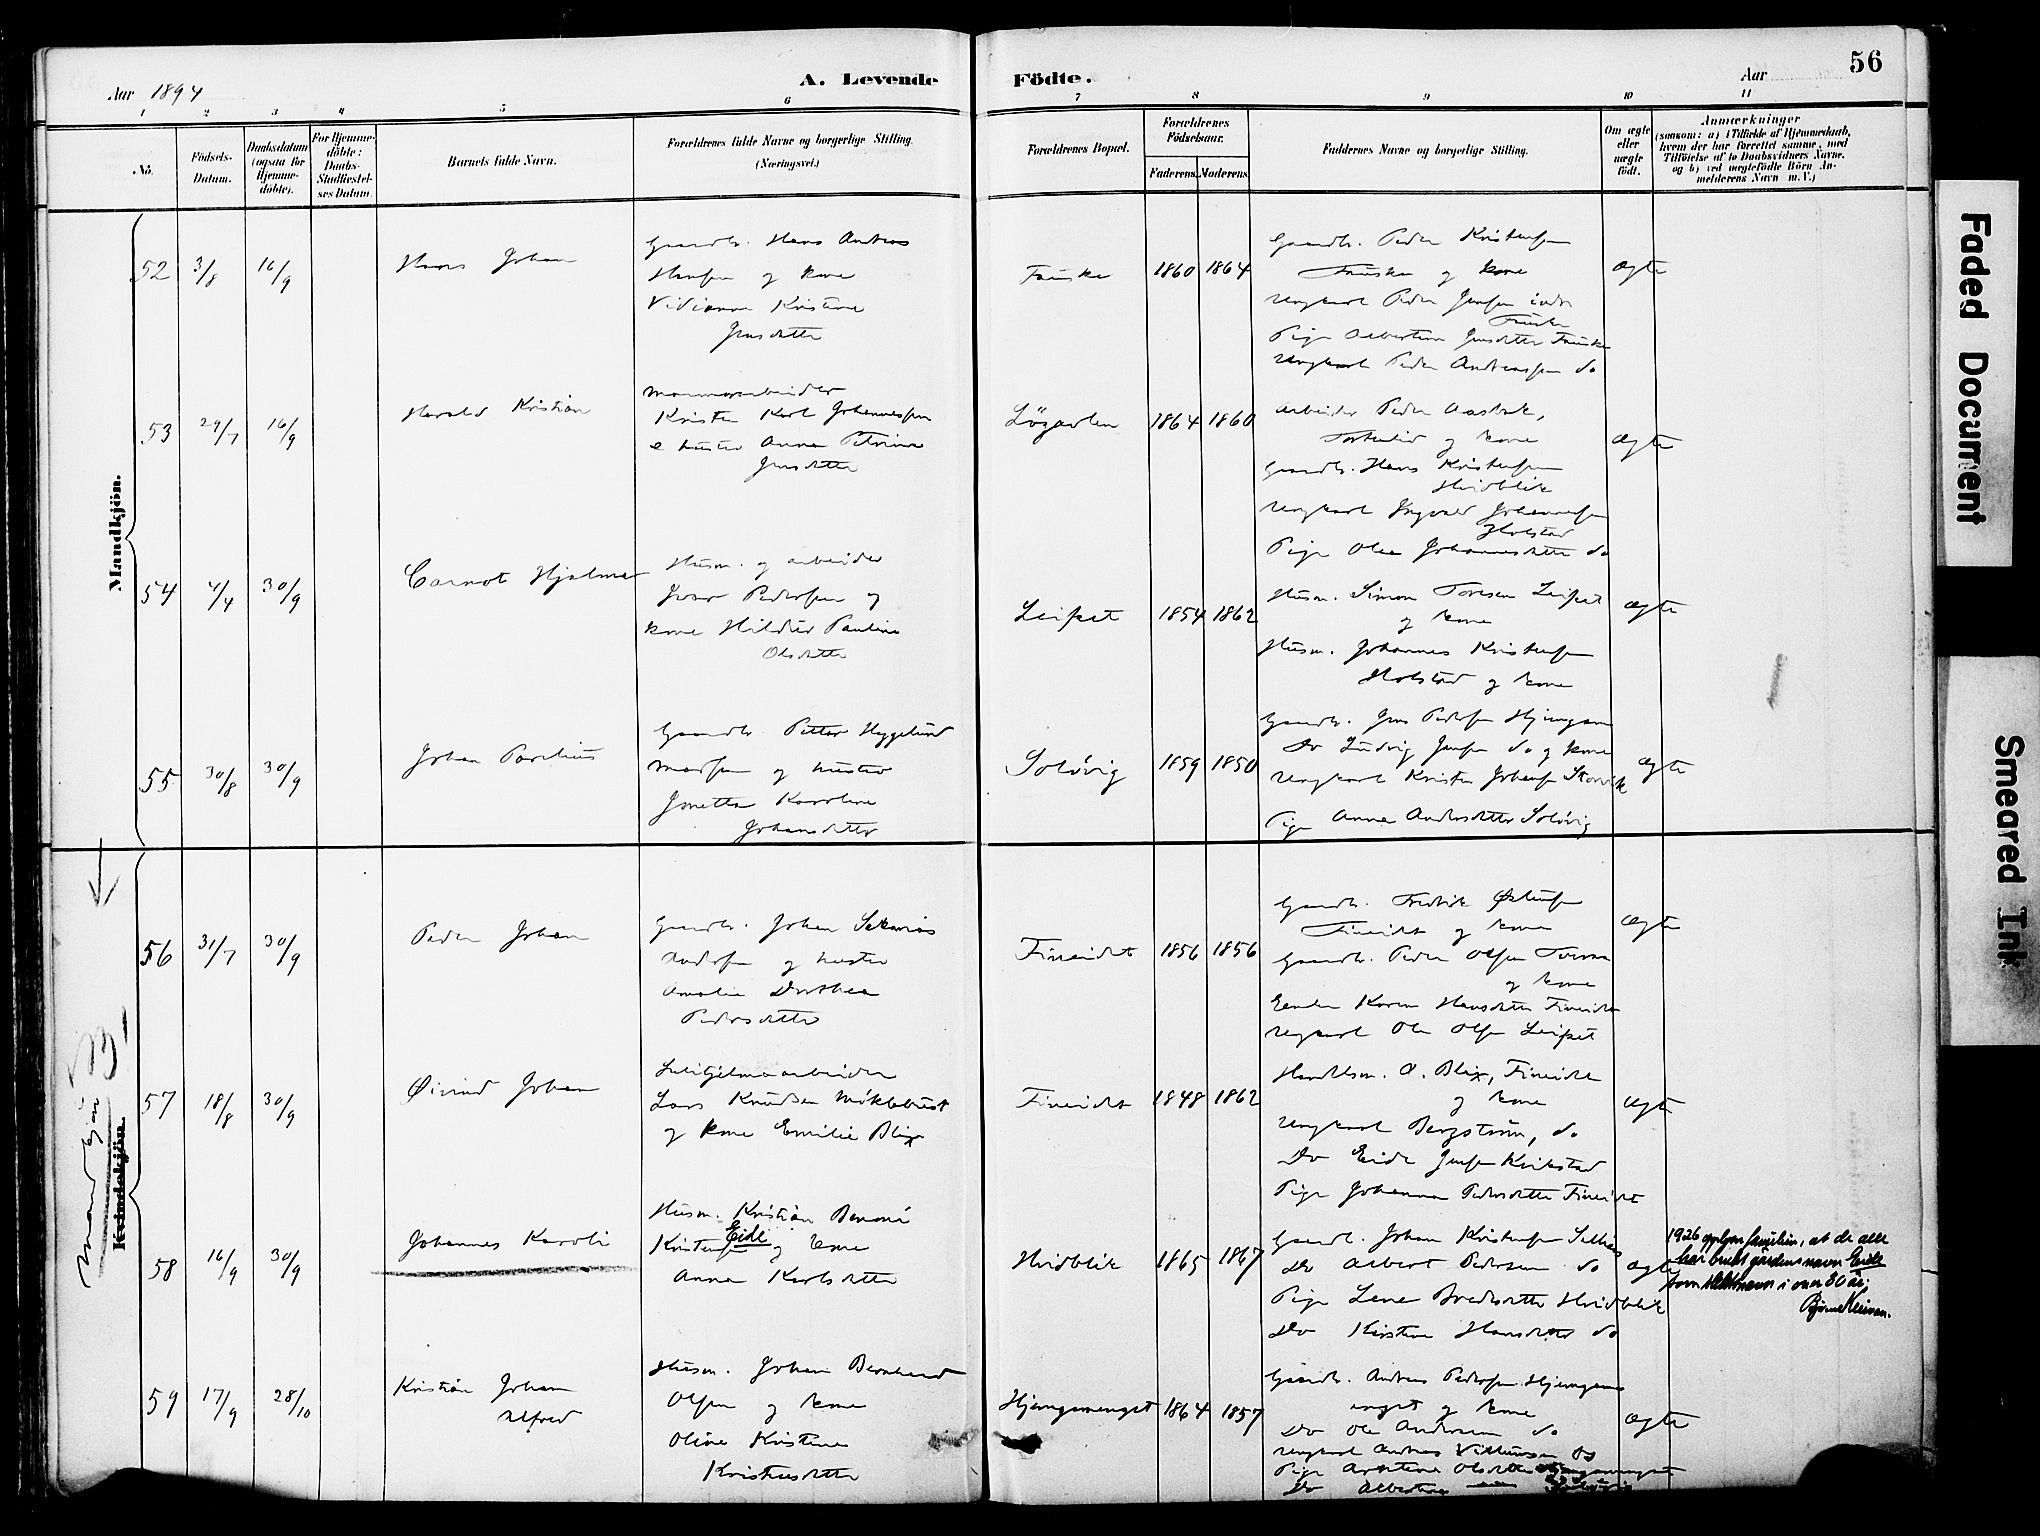 56
Aar 1894
A. Levende Födte.
Aar
1 2 3 4 5 6 7 8 9 10 11
No.
Födsels-Datum.
Daabsdatum (ogsaa for Hjemme-döbte).
For Hjemme-döbte: Daabs-Stadfæstel-ses Datum.
Barnets fulde Navn.
Forældrenes fulde Navne og borgerlige Stilling. (Næringsvei.)
Forældrenes Bopæl.
Forældrenes Födselsaar.
Faderens. Moderens.
Faddernes Navne og borgerlige Stilling.
Om ægte eller uægte födt.
Anmærkninger
(saasom: a) i Tilfælde af Hjemmedaab,
hvem der har forrettet samme, med
Tilföielse af to Daabsvidners Navne.
og b) ved uægtefödte Börn An-
melderens Navn m. V.)
Mandkjön.
52 3/8 16/9
Hans Johan
Gaardbr. Hans Andreas
Hansen og kone
Vidianna Kristine
Jensdatter
Fauske 1860 1864
Gaardbr. Peder Kristensen
Fauske og kone
Ungkarl Peder Jensen indr
Fauske
Pige Albertine Jensdatter Fauske
Ungkarl Peder Andreassen do
ægte
53 29/7 16/9
Harald Kristian
Marmorarbeider
Kristen Karl Johannessen
e hustru Anna Petrine
Jensdatter
Løgavlen 1864 1860
Arbeider Peder Aasbak,
og kone
Gaardbr. Hans Kristensen
Hvidblik
Ungkarl Ingvald Johannessen
Holstad
Pige Olea Johannesdatter do
ægte
54 4/4 30/9
Carnot Hjalmar
Husm. og arbeider
Ivar Pedersen og
kone Hildur Pauline
Olsdatter
Leifset 1854 1862
Husm. Simon Toresen Leifset
og kone
Husm. Johannes Kristensen
Holstad og kone
ægte
55 30/8 30/9
Johan Parelius
Gaardbr. Petter Hyggelund
Madsen og hustru
Jonetta Karoline
Johansdatter
Soløvig 1859 1850
Gaardbr. Jens Pedersen Hjemgam
Do Ludvig Jensen do og kone
Ungkarl Kristen Johansen Storvik
Pige Anna Andersdatter Soløvig
ægte
Mandkjøn
Kvindekjön.
56 31/7 30/9
Peder Johan
Gaardbr. Johan Sakarias
Andersen og hustru
Amalie Dorthea
Pedersdatter
Fineidet 1856 1856
Gaardbr. Fredrik Østensen
Fineidet og kone
Gaardbr. Peder Olsen Tveraa
og kone
Enke Karen Hansdatter Fineidet
Ungkarl Ole Olsen Leifset
ægte
57 18/8 30/9
Øivind Johan
Sulitjelmaarbeider
Lars Knudsen Møklebust
og kone Emilie Blix
Fineidet 1848 1862
Handelsm. A. Blix, Fineidet
og kone
Ungkarl Bergstrøm, do
Do Eide Jensen Kvikstad
Pige Johanna Pedersdatter Fineidet
ægte
58 16/9 30/9
Johannes Karoli
Husm. Kristian Benoni
Kristensen Eide og kone
Anna Karlsdatter
Hvidblik 1865 1867
Gaardbr. Johan Kristensen
Do Albert Pedersen do
Pige Lene Bredesdatter Hvidblik
Do Kirstine Hansdatter do
ægte
1926 oplyser familien, at de alle
har brukt gårdens navn Eide
som slektsnavn i over 30 år;
59 17/9 28/10
Kristian Johan
Alfred
Husm. Johan Bernhard
Olsen og kone
Oline Kristine
Kristensdatter
Hjemgamenget 1864 1857
Gaardbr. Andreas Pedersen Hjemgams
enget og kone
Do Ole Andersen do
Ungkarl Andreas Villumsen og
Pige Olsdatter
Do Albertine
ægte
Faded Document
Smeared Ink